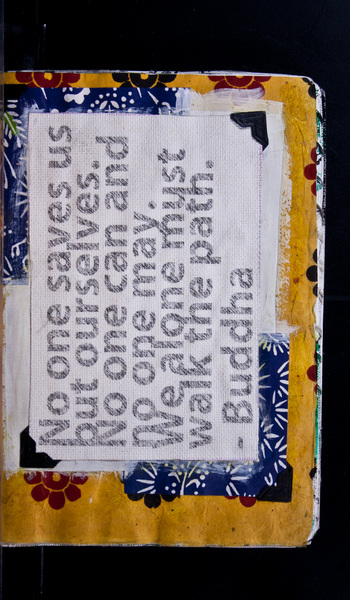 No one saves us
but ourselves.
No one can and
no one may.
We alone must
walk the path.
- Buddha